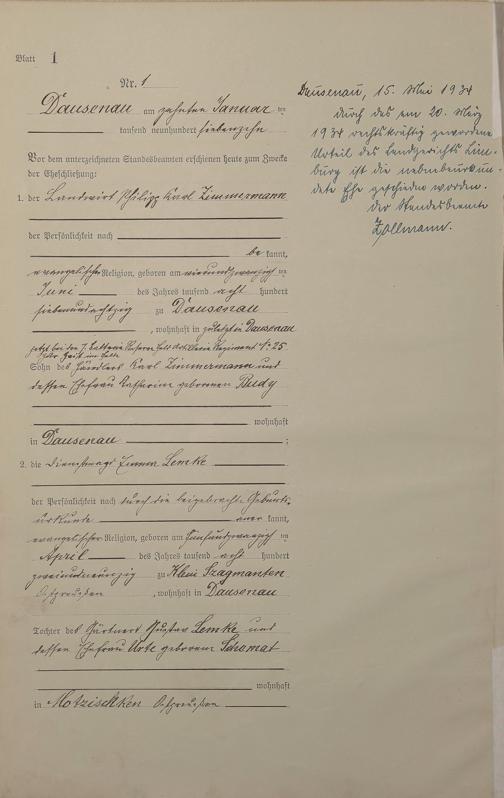 Blatt 1
Nr. 1
Dausenau am zehnten Januar
tausend neunhundert siebenzehn
Vor dem unterzeichneten Standesbeamten erschienen heute zum Zwecke
der Eheschließung:
1. der Landwirt Philipp Karl Zimmermann
der Persönlichkeit nach
be kannt,
evangelischer Religion, geboren am vierundzwanzigsten
Juni des Jahres tausend acht hundert
siebenundachtzig zu Dausenau
, wohnhaft in zuletzt in Dausenau
jetzt bei der 7. Batterie Reserve Feld Artillerie Regiment No 25
Sohn des Händlers Karl Zimmermann und
dessen Ehefrau Katharina geborenen Rudy
wohnhaft
in Dausenau ;
2. die Dienstmagd Emma Lemke
der Persönlichkeit nach durch die beigebrachte Geburts-
urkunde aner kannt,
evangelischer Religion, geboren am fünfundzwanzigsten
April des Jahres tausend acht hundert
zweiundneunzig zu Klein Szagmanten
Ostpreußen , wohnhaft in Dausenau
Tochter des Gärtners Gustav Lemke und
dessen Ehefrau Urte geborenen Schomat
wohnhaft
in Motzischken Ostpreußen
Dausenau, 15. Mai 1934
durch das am 20. März
1934 rechtskräftig gewordene
Urteil des Landgerichts Lim-
burg ist die nebenbeurkun-
dete Ehe geschieden worden.
Der Standesbeamte
Zollmann.